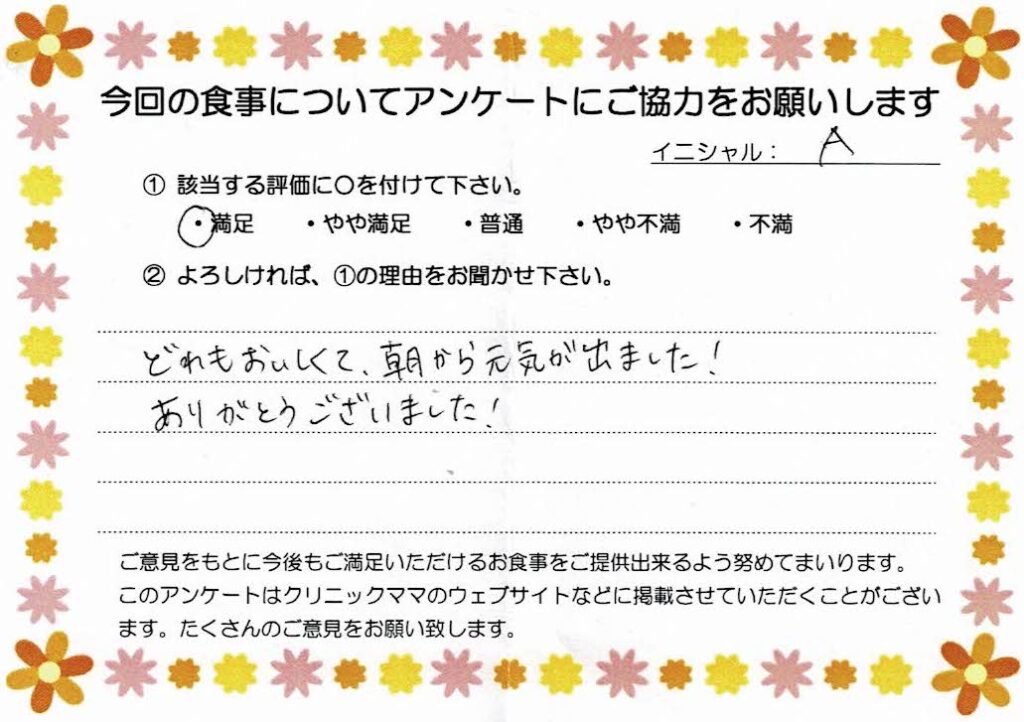 今回の食事についてアンケートにご協力をお願いします
イニシャル： A
① 該当する評価に〇を付けて下さい。
・満足 ・やや満足 ・普通 ・やや不満 ・不満
② よろしければ、①の理由をお聞かせ下さい。
どれもおいしくて、朝から元気が出ました！
ありがとうございました！
ご意見をもとに今後もご満足いただけるお食事をご提供出来るよう努めてまいります。
このアンケートはクリニックママのウェブサイトなどに掲載させていただくことがござい
ます。たくさんのご意見をお願い致します。